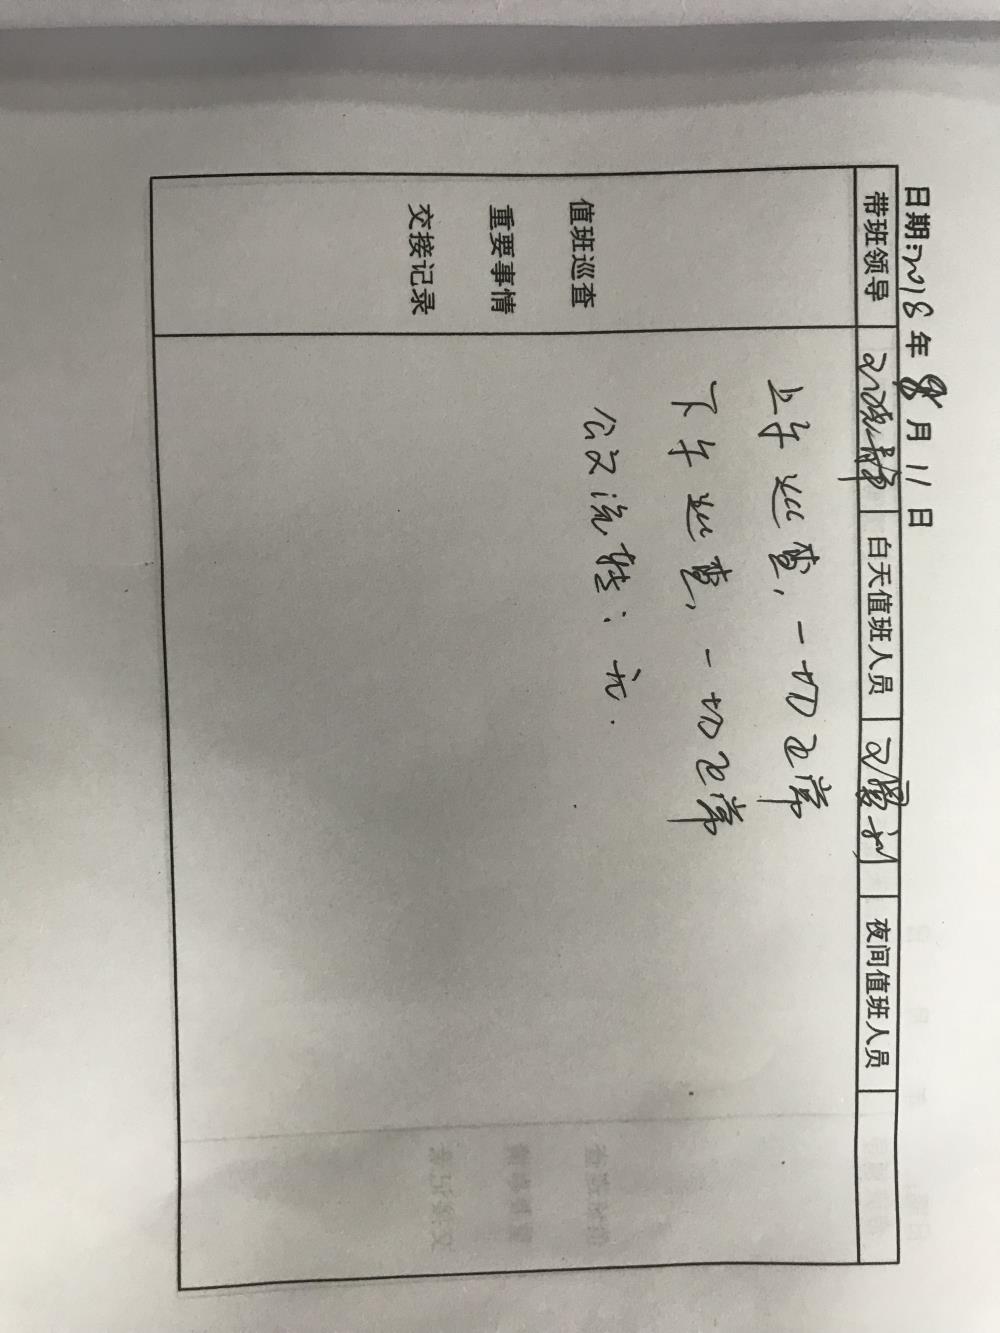 日期:2018年8月11日
带班领导 白天值班人员 夜间值班人员
值班巡查
重要事情
交接记录
上午巡查,一切正常
下午巡查,一切正常
公文流转:无.